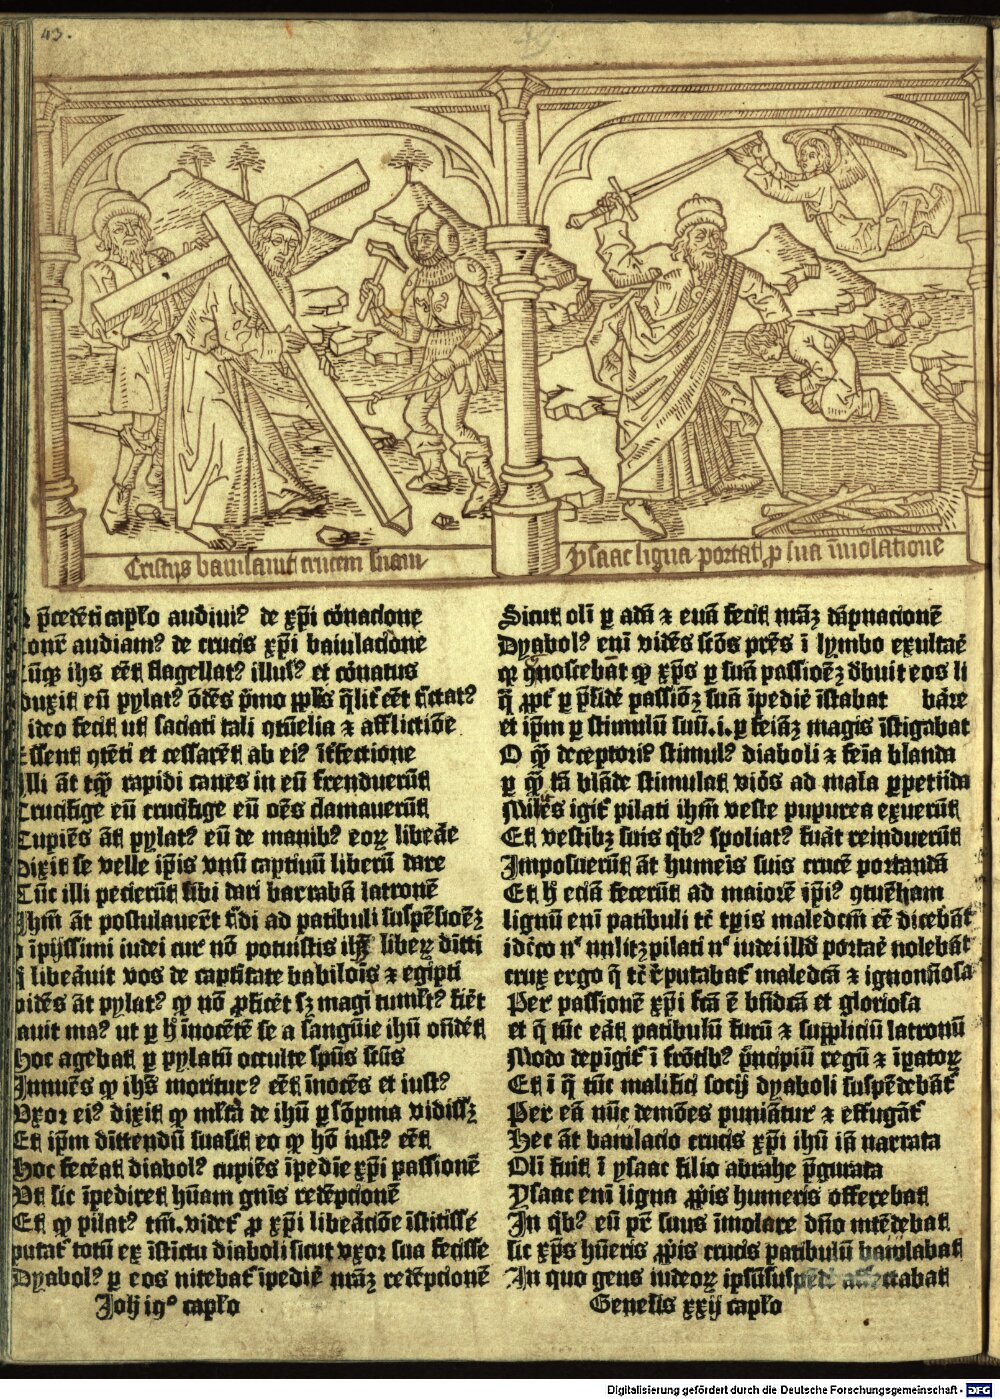 43.
Cristus baiulauit crucem suam
Ysaac ligna portat ꝓ sua īmolatione
p̄cedēti capl̄o audiuiꝰ de xp̄i cōnacione
audiamꝰ de crucis xp̄i baiulacione
ihs eēt flagellatꝰ illusꝰ et cōnatus
duxit eū pylatꝰ
ideo fecit ut saciati tali ꝯtūelia ⁊ afflictiōe
Essent ꝯtēti et cessarēt ab eiꝰ īt̄fectione
Illi āt tq̄ꝫ rapidi canes in eū frenduerūt
Crucifige eū crucifige eū oēs clamauerūt
Cupiēs āt pylatꝰ eū de manibꝰ eoꝝ libeāe
Dixit se velle ip̄is vnū captiuū liberū dare
Tūc illi pecierūt sibi dari barrabā latronē
Ihm̄ āt postulauerēt t̄di ad patibuli suspēsiōeꝫ
o īpijssimi iudei cur nō potuistis
libeāuit vos de captītate babilōis ⁊ egipti
vidēs āt pylatꝰ ꝙ nō ꝓficēt sꝫ magꝭ tumltꝰ fiēt
lauit maꝰ ut ꝑ h̄ īnocētē se a sanguīe ihū
Hoc agebat ꝑ pylatū occulte sp̄us sc̄us
Innuēs ꝙ ihs moriturꝰ eēt īnocēs et iustꝰ
Vxor eiꝰ dixit ꝙ ml̄ta de ihū ꝑ sōpma vidissꝫ
Et ip̄m dīttendū suasit eo ꝙ hō iustꝰ eēt
Hoc fecēat diabolꝰ cupiēs īpedīe xp̄i passionē
Vt sic īpediret hūam gn̄is redēpcionē
Et ꝙ pilatꝰ tm̄. videt̄ ꝓ xp̄i libeāciōe īstitissē
putat̄ totū ex īstīctu diaboli sicut vxor sua fecisse
Dyabolꝰ ꝑ eos nitebat̄ īpedīe nr̄aꝫ redēpcionē
Joh̄ ıꝯº capl̄o
Sicut oli ꝑ adā ⁊ euā fecit nr̄aꝫ dāpnacionē
Dyabolꝰ eni vidēs sc̄os pr̄es ī lymbo exultaē
ꝙ ꝯnoscebāt ꝙ xp̄s ꝑ suā passioēꝫ d̄buit eos li
passiōꝫ suā īpedīe īstabat bāre
et ip̄m ꝑ stimulū suū .i. ꝑ feīaꝫ magis īstigabat
O ꝙ̄ deceptoriꝰ stimulꝰ diaboli ⁊ feīa blanda
ꝑ ꝙ̄ tā blāde stimulat viōs ad mala ꝑpetāda
Milēs igit̄ pilati ihm̄ veste pupurea exuerūt
Et vestibꝫ suis qᷓbꝰ spoliatꝰ fuāt reinduerūt
Imposuerūt āt humeīs suis crucē portandā
Et h̄ eciā fecerūt ad maiorē ip̄iꝰ ꝯtūeliam
lignū eni patibuli tc̄ tp̄is maledcm̄ eē dicebāt̄
idc̄co nͨ militꝫ pilati nͨ iudei illd̄ portaē nolebāt
crux ergo q̄ tc̄ r̄putabat̄ maledcā ⁊ ignomīosa
Per passionē xp̄i fcā ē bn̄dcā et gloriosa
et q̄ tūc eāt patibulū furū ⁊ suppliciū latronū
Modo depīgit̄ ī frōtibꝰ p̄ncipiū regū ⁊ īpatoꝝ
Et ī q̄ tūc malifici socij dyaboli suspēdebāt̄
Per eā nūc demōes puniāntur ⁊ effugāt̄
Hec āt baiulacio crucis xp̄i ihū iā narrata
Olī fuit ī ysaac filio abrahe p̄gurata
Ysaac eni ligna ꝓp̄is humeris offerebat
In qᷓbꝰ eū pr̄ suus īmolare dn̄o intēdebat
sic xp̄s hūeris ꝓp̄is crucis patibulū baiulabat
In quo gens iudeoꝝ ipsū suspēdi affectabat
Genesis xxij capl̄o
Digitalisierung gefördert durch die Deutsche Forschungsgemeinschaft - DFG